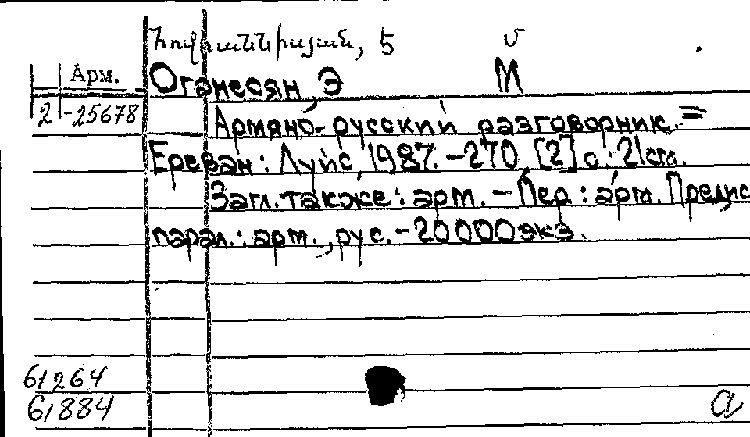 Арм.
Оганесян, Э М
2-25678
Армяно-русский разговорник. =
Ереван: Луйс, 1987. -270 [2] с.: 21 см.
Загл. также: арм. - Пер.: арм. Предис
парал.: арм., рус. - 20000 экз.
61264
61884
а